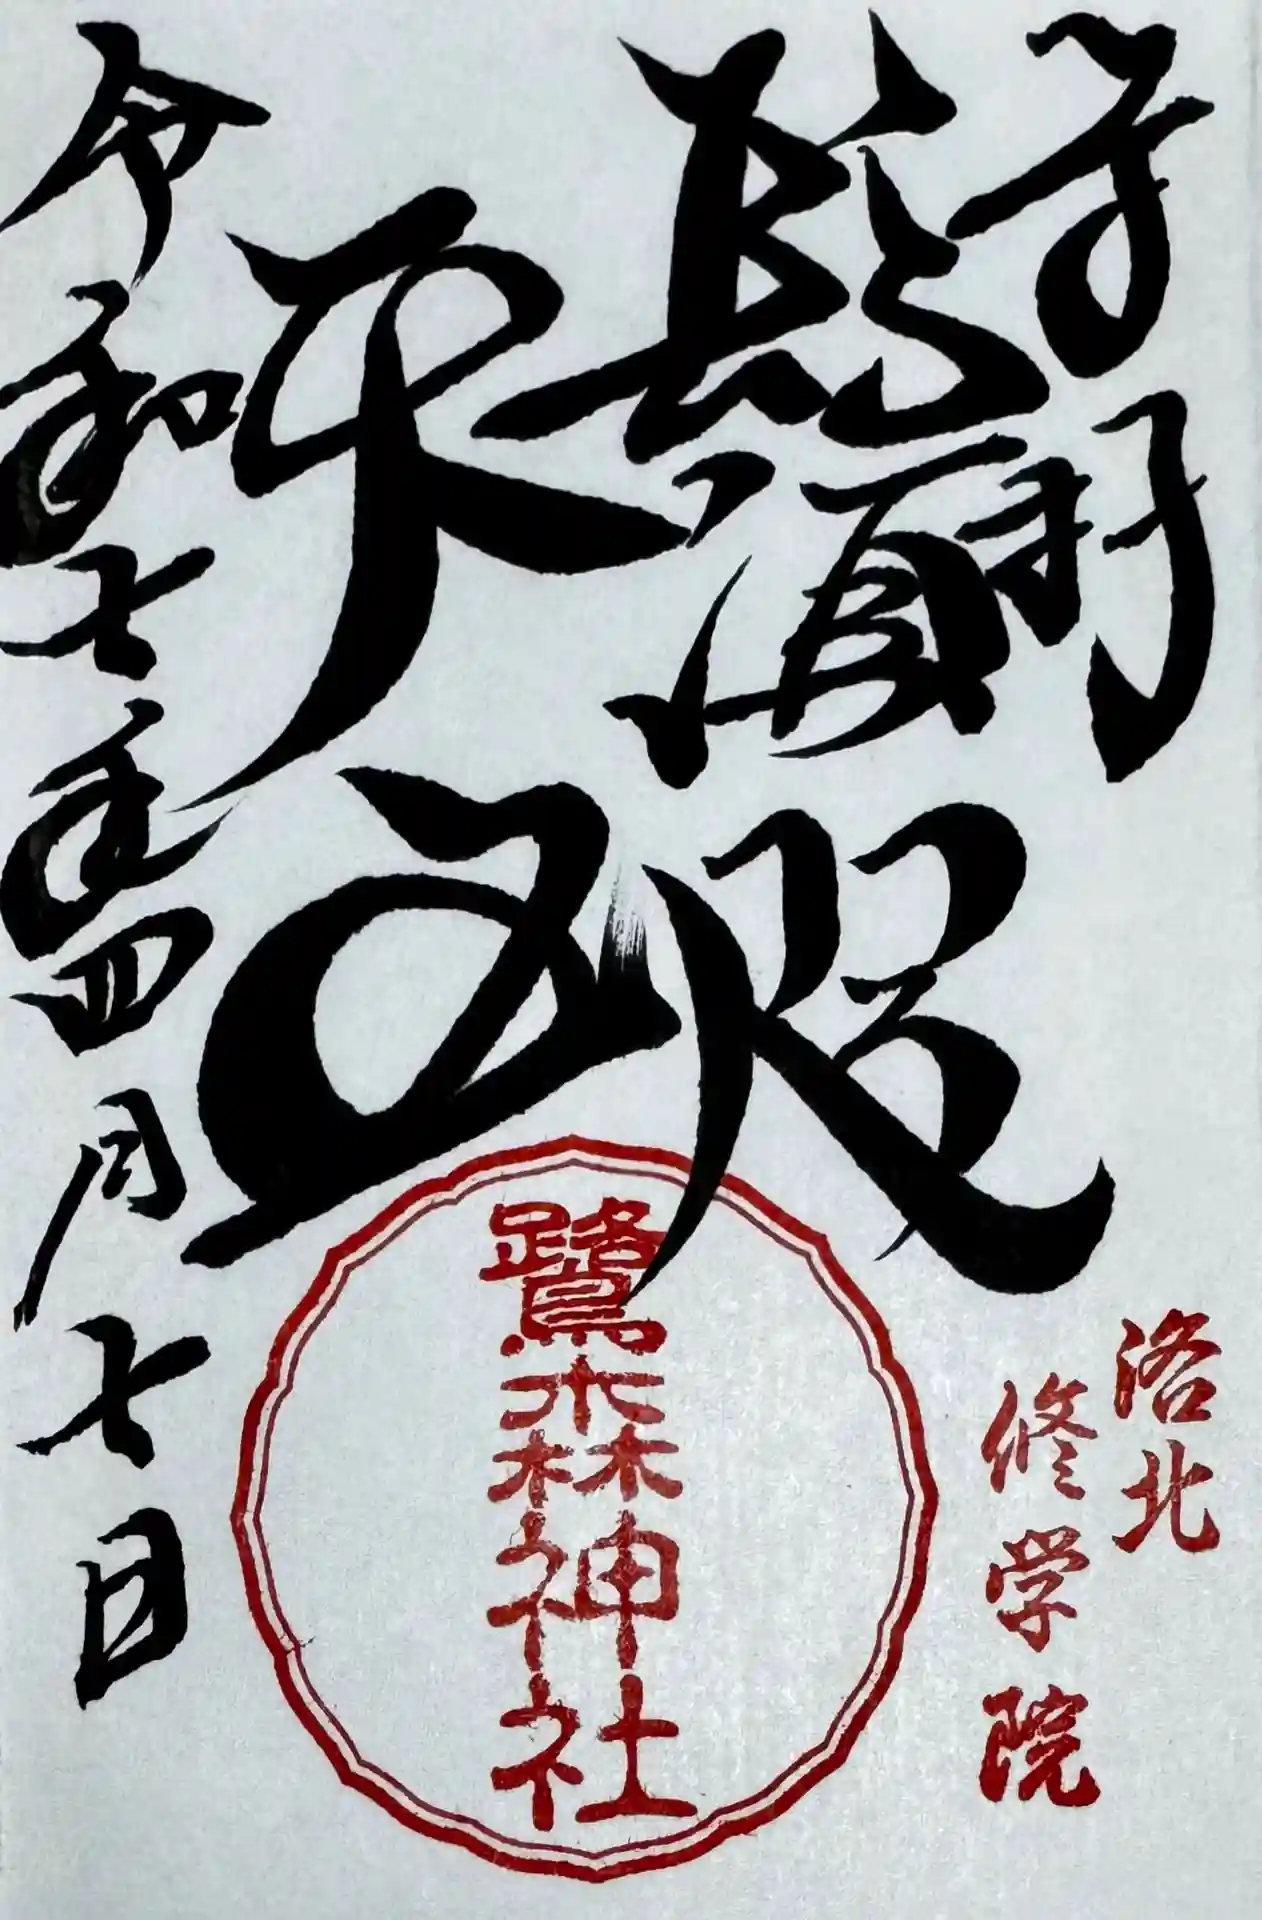 奉拝
鬢咫
天王
令和七年四月七日
洛北
修学院
鷺森神社